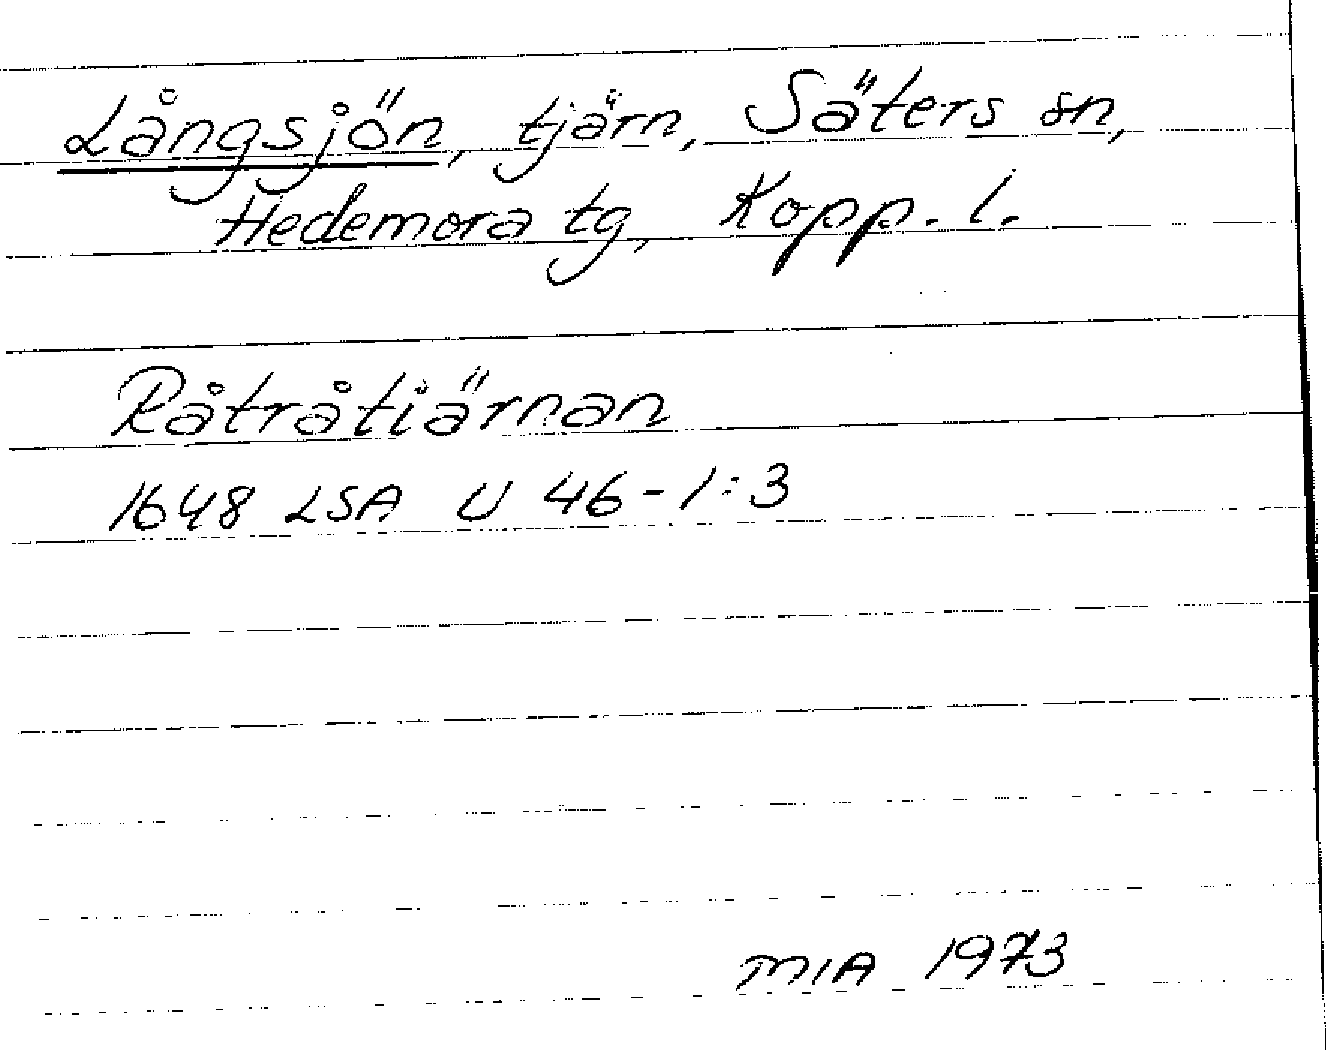 Långsjön, tjärn, Säters sn,
Hedemora tg, Kopp. l.
Råtråtiärnan
1648 LSA U 46-1:3
MIA 1973